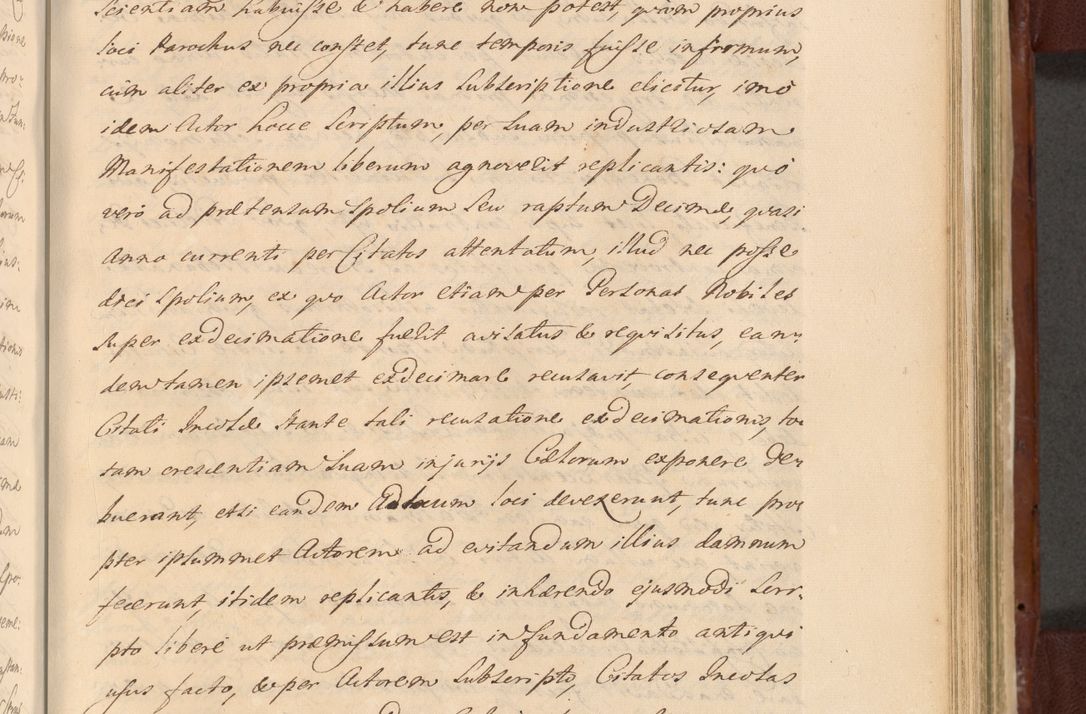 Scientiam habuisse & habere non potest, qvòm proprius
loci Parochus nec constet, tunc temporis fuisse infirmum,
cùm aliter ex propria illius Subscriptione elicitur, imò
idem Actor hocce Scriptum, per suam industriosam
Manifestationem liberum agnoverit replicantis: qvò
verò ad prætensum Spolium seu raptum Decimæ, qvasi
Anno currenti per Citatos attentatum, illud nec posse
dici Spolium, ex qvo Actor etiam per Personas Nobiles
super exdecimatione fuerit avisatus & reqvisitus, ean-
dem tamen ipsemet exdecimare recusavit, conseqventer
Citati Incolæ stante tali recusatione exdecimationis, to-
tam crescentiam suam injurijs Cælorum exponere de-
buerant, etsi eandem ad locum loci devexerunt, tunc pro-
pter ipsummet Actorem ad evitandum illius damnum
fecerunt, itidem replicantis, & inhærendo ejusmodi Scri-
pto liberè ut præmissum est in fundamento antiqui
usus facto, & per Actorem Subscripto, Citatos Incolas